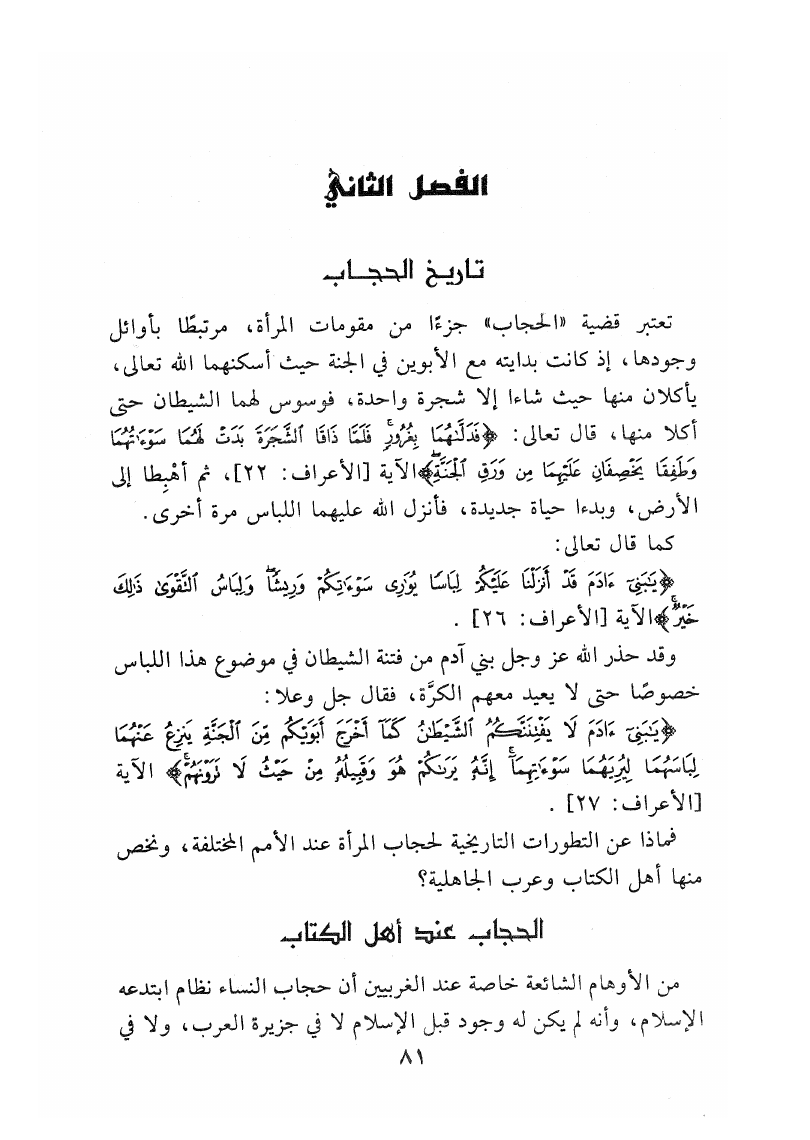 الفصل الثاني
تاريخ الحجاب
تعتبر قضية «الحجاب» جزءًا من مقومات المرأة، مرتبطًا بأوائل
وجودها، إذ كانت بدايته مع الأبوين في الجنة حيث أسكنهما الله تعالى،
يأكلان منها حيث شاءا إلا شجرة واحدة، فوسوس لهما الشيطان حتى
أكلا منها، قال تعالى: ﴿فَدَلَّىٰهُمَا بِغُرُورٍۚ فَلَمَّا ذَاقَا ٱلشَّجَرَةَ بَدَتۡ لَهُمَا سَوۡءَٰتُهُمَا
وَطَفِقَا يَخۡصِفَانِ عَلَيۡهِمَا مِن وَرَقِ ٱلۡجَنَّةِۖ﴾ الآية [الأعراف: ٢٢]، ثم أُهْبِطا إلى
الأرض، وبدءا حياة جديدة، فأنزل الله عليهما اللباس مرة أخرى.
كما قال تعالى:
﴿يَٰبَنِيٓ ءَادَمَ قَدۡ أَنزَلۡنَا عَلَيۡكُمۡ لِبَاسٗا يُوَٰرِي سَوۡءَٰتِكُمۡ وَرِيشٗاۖ وَلِبَاسُ ٱلتَّقۡوَىٰ ذَٰلِكَ
خَيۡرٞۚ﴾ الآية [الأعراف: ٢٦] .
وقد حذر الله عز وجل بني آدم من فتنة الشيطان في موضوع هذا اللباس
خصوصًا حتى لا يعيد معهم الكرَّة، فقال جل وعلا:
﴿يَٰبَنِيٓ ءَادَمَ لَا يَفۡتِنَنَّكُمُ ٱلشَّيۡطَٰنُ كَمَآ أَخۡرَجَ أَبَوَيۡكُم مِّنَ ٱلۡجَنَّةِ يَنزِعُ عَنۡهُمَا
لِبَاسَهُمَا لِيُرِيَهُمَا سَوۡءَٰتِهِمَآۚ إِنَّهُۥ يَرَىٰكُمۡ هُوَ وَقَبِيلُهُۥ مِنۡ حَيۡثُ لَا تَرَوۡنَهُمۡۗ﴾ الآية
[الأعراف: ٢٧] .
فماذا عن التطورات التاريخية لحجاب المرأة عند الأمم المختلفة، ونخص
منها أهل الكتاب وعرب الجاهلية؟
الحجاب عند أهل الكتاب
من الأوهام الشائعة خاصة عند الغربيين أن حجاب النساء نظام ابتدعه
الإسلام، وأنه لم يكن له وجود قبل الإسلام لا في جزيرة العرب، ولا في
٨١